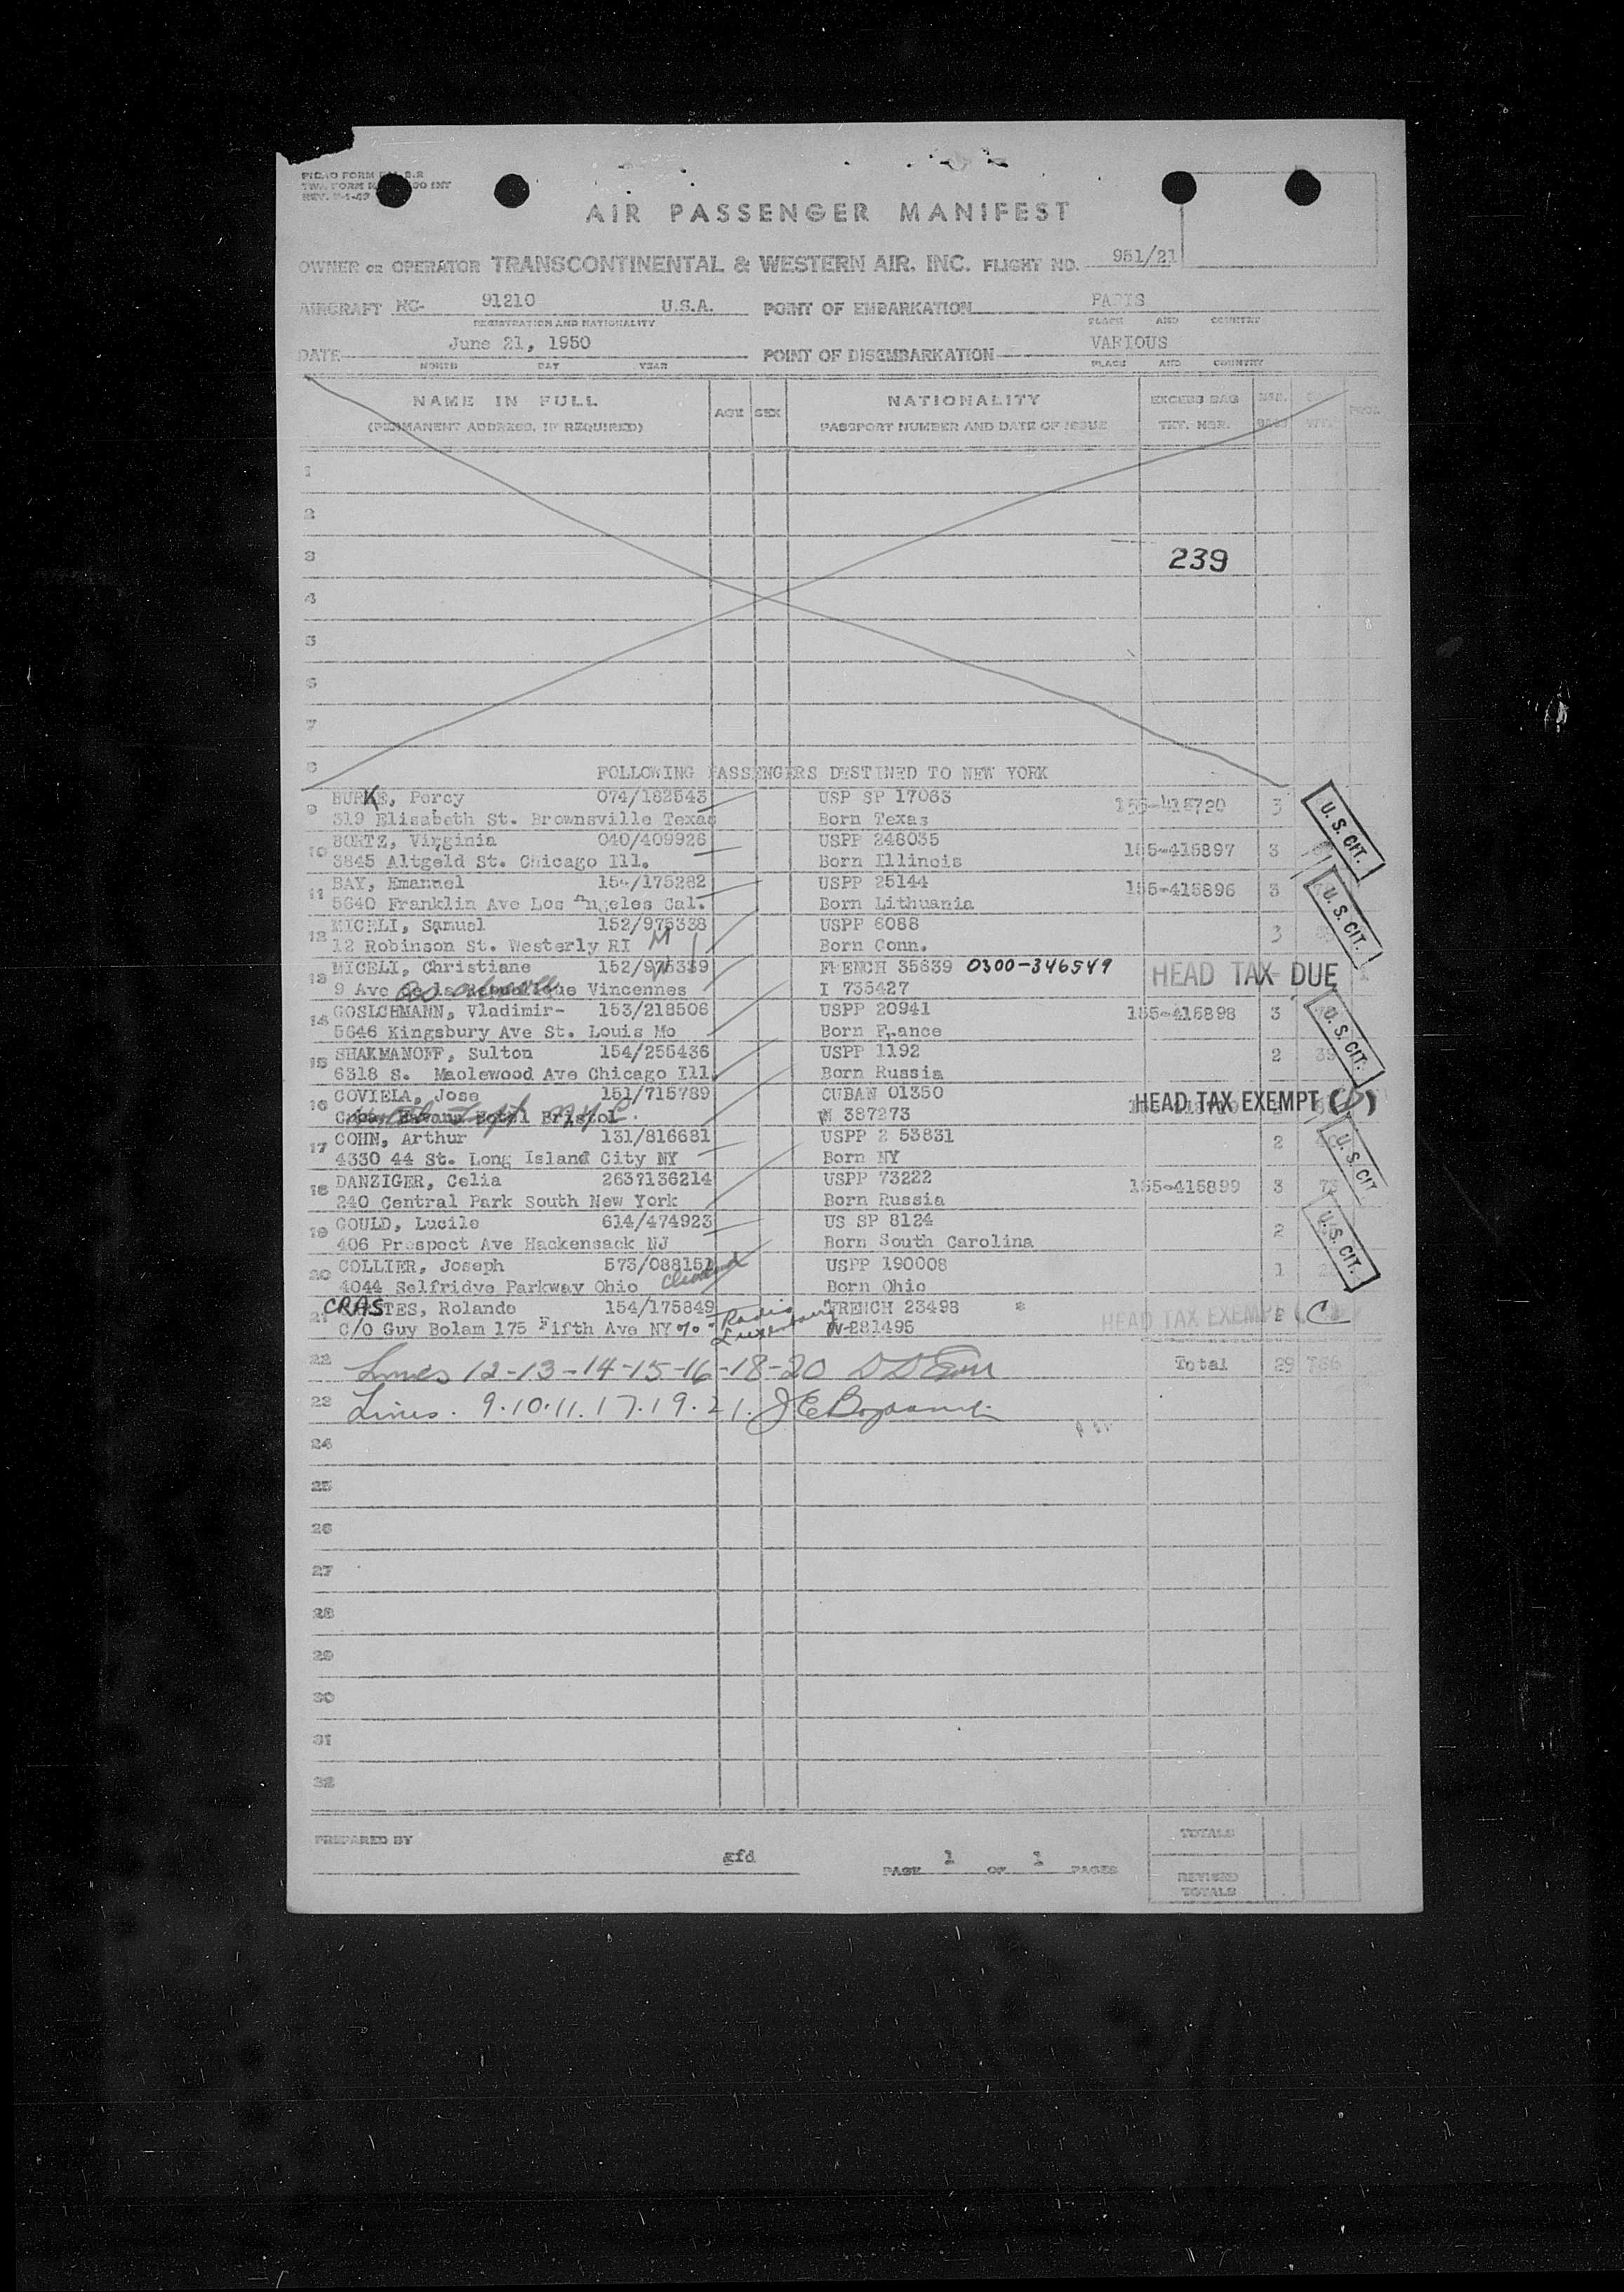 AIR PASSENGER MANIFEST
OWNER OR OPERATOR TRANSCONTINENTAL & WESTERN AIR, INC. FLIGHT NO. 951/21
AIRCRAFT NC- 91210 U.S.A. POINT OF EMBARKATION PARIS
REGISTRATION AND NATIONALITY PLACE AND COUNTRY
DATE June 21, 1950 POINT OF DISEMBARKATION VARIOUS
MONTH DAY YEAR PLACE AND COUNTRY
NAME IN FULL AGE SEX NATIONALITY EXCESS BAG
(PERMANENT ADDRESS, IF REQUIRED) PASSPORT NUMBER AND DATE OF ISSUE TKT. NBR.
1
2
3 239
4
5
6
7
8 FOLLOWING PASSENGERS DESTINED TO NEW YORK
9 BURKE, Percy 074/182543 USP SP 17063 155-418720 3 U. S. CIT.
319 Elisabeth St. Brownsville Texas Born Texas
10 BORTZ, Virginia 040/409926 USPP 248035 155-415897 3
3845 Altgeld St. Chicago Ill. Born Illinois
11 BAY, Emanuel 154/175282 USPP 25144 155-415896 3 U. S. CIT.
5640 Franklin Ave Los Angeles Cal. Born Lithuania
12 MICELI, Samuel 152/975338 USPP 6088 3
12 Robinson St. Westerly RI M Born Conn.
13 MICELI, Christiane 152/975339 FRENCH 35639 0300-346549 HEAD TAX DUE
9 Ave de la Vincennes I 735427
14 GOSLCHMANN, Vladimir- 153/218506 USPP 20941 155-415898 3 U. S. CIT.
5646 Kingsbury Ave St. Louis Mo Born France
15 SHAKMANOFF, Sulton 154/255436 USPP 1192 2
6318 S. Maolewood Ave Chicago Ill. Born Russia
16 COVIELA, Jose 151/715789 CUBAN 01350 HEAD TAX EXEMPT
Hotel Bristol 387273
17 COHN, Arthur 131/816681 USPP 2 53831 2 U. S. CIT
4330 44 St. Long Island City NY Born NY
18 DANZIGER, Celia 2637136214 USPP 73222 155-415899 3
240 Central Park South New York Born Russia
19 GOULD, Lucile 614/474923 US SP 8124 2 U.S. CIT.
406 Prospect Ave Hackensack NJ Born South Carolina
20 COLLIER, Joseph 573/088151 USPP 190008 1
4044 Selfridve Parkway Ohio Cleveland Born Ohio
21 CRASTES, Rolande 154/175849 FRENCH 23498 * HEAD TAX EXEMPT (C)
C/O Guy Bolam 175 Fifth Ave NY % Radio Luxembourg V-281495
22 Lines 12-13-14-15-16-18-20 Total 29 786
23 Lines. 9.10.11.17.19.21.
24
25
26
27
28
29
30
31
32
PREPARED BY TOTALS
gfd PAGE 1 OF 1 PAGES
REVISED
TOTALS